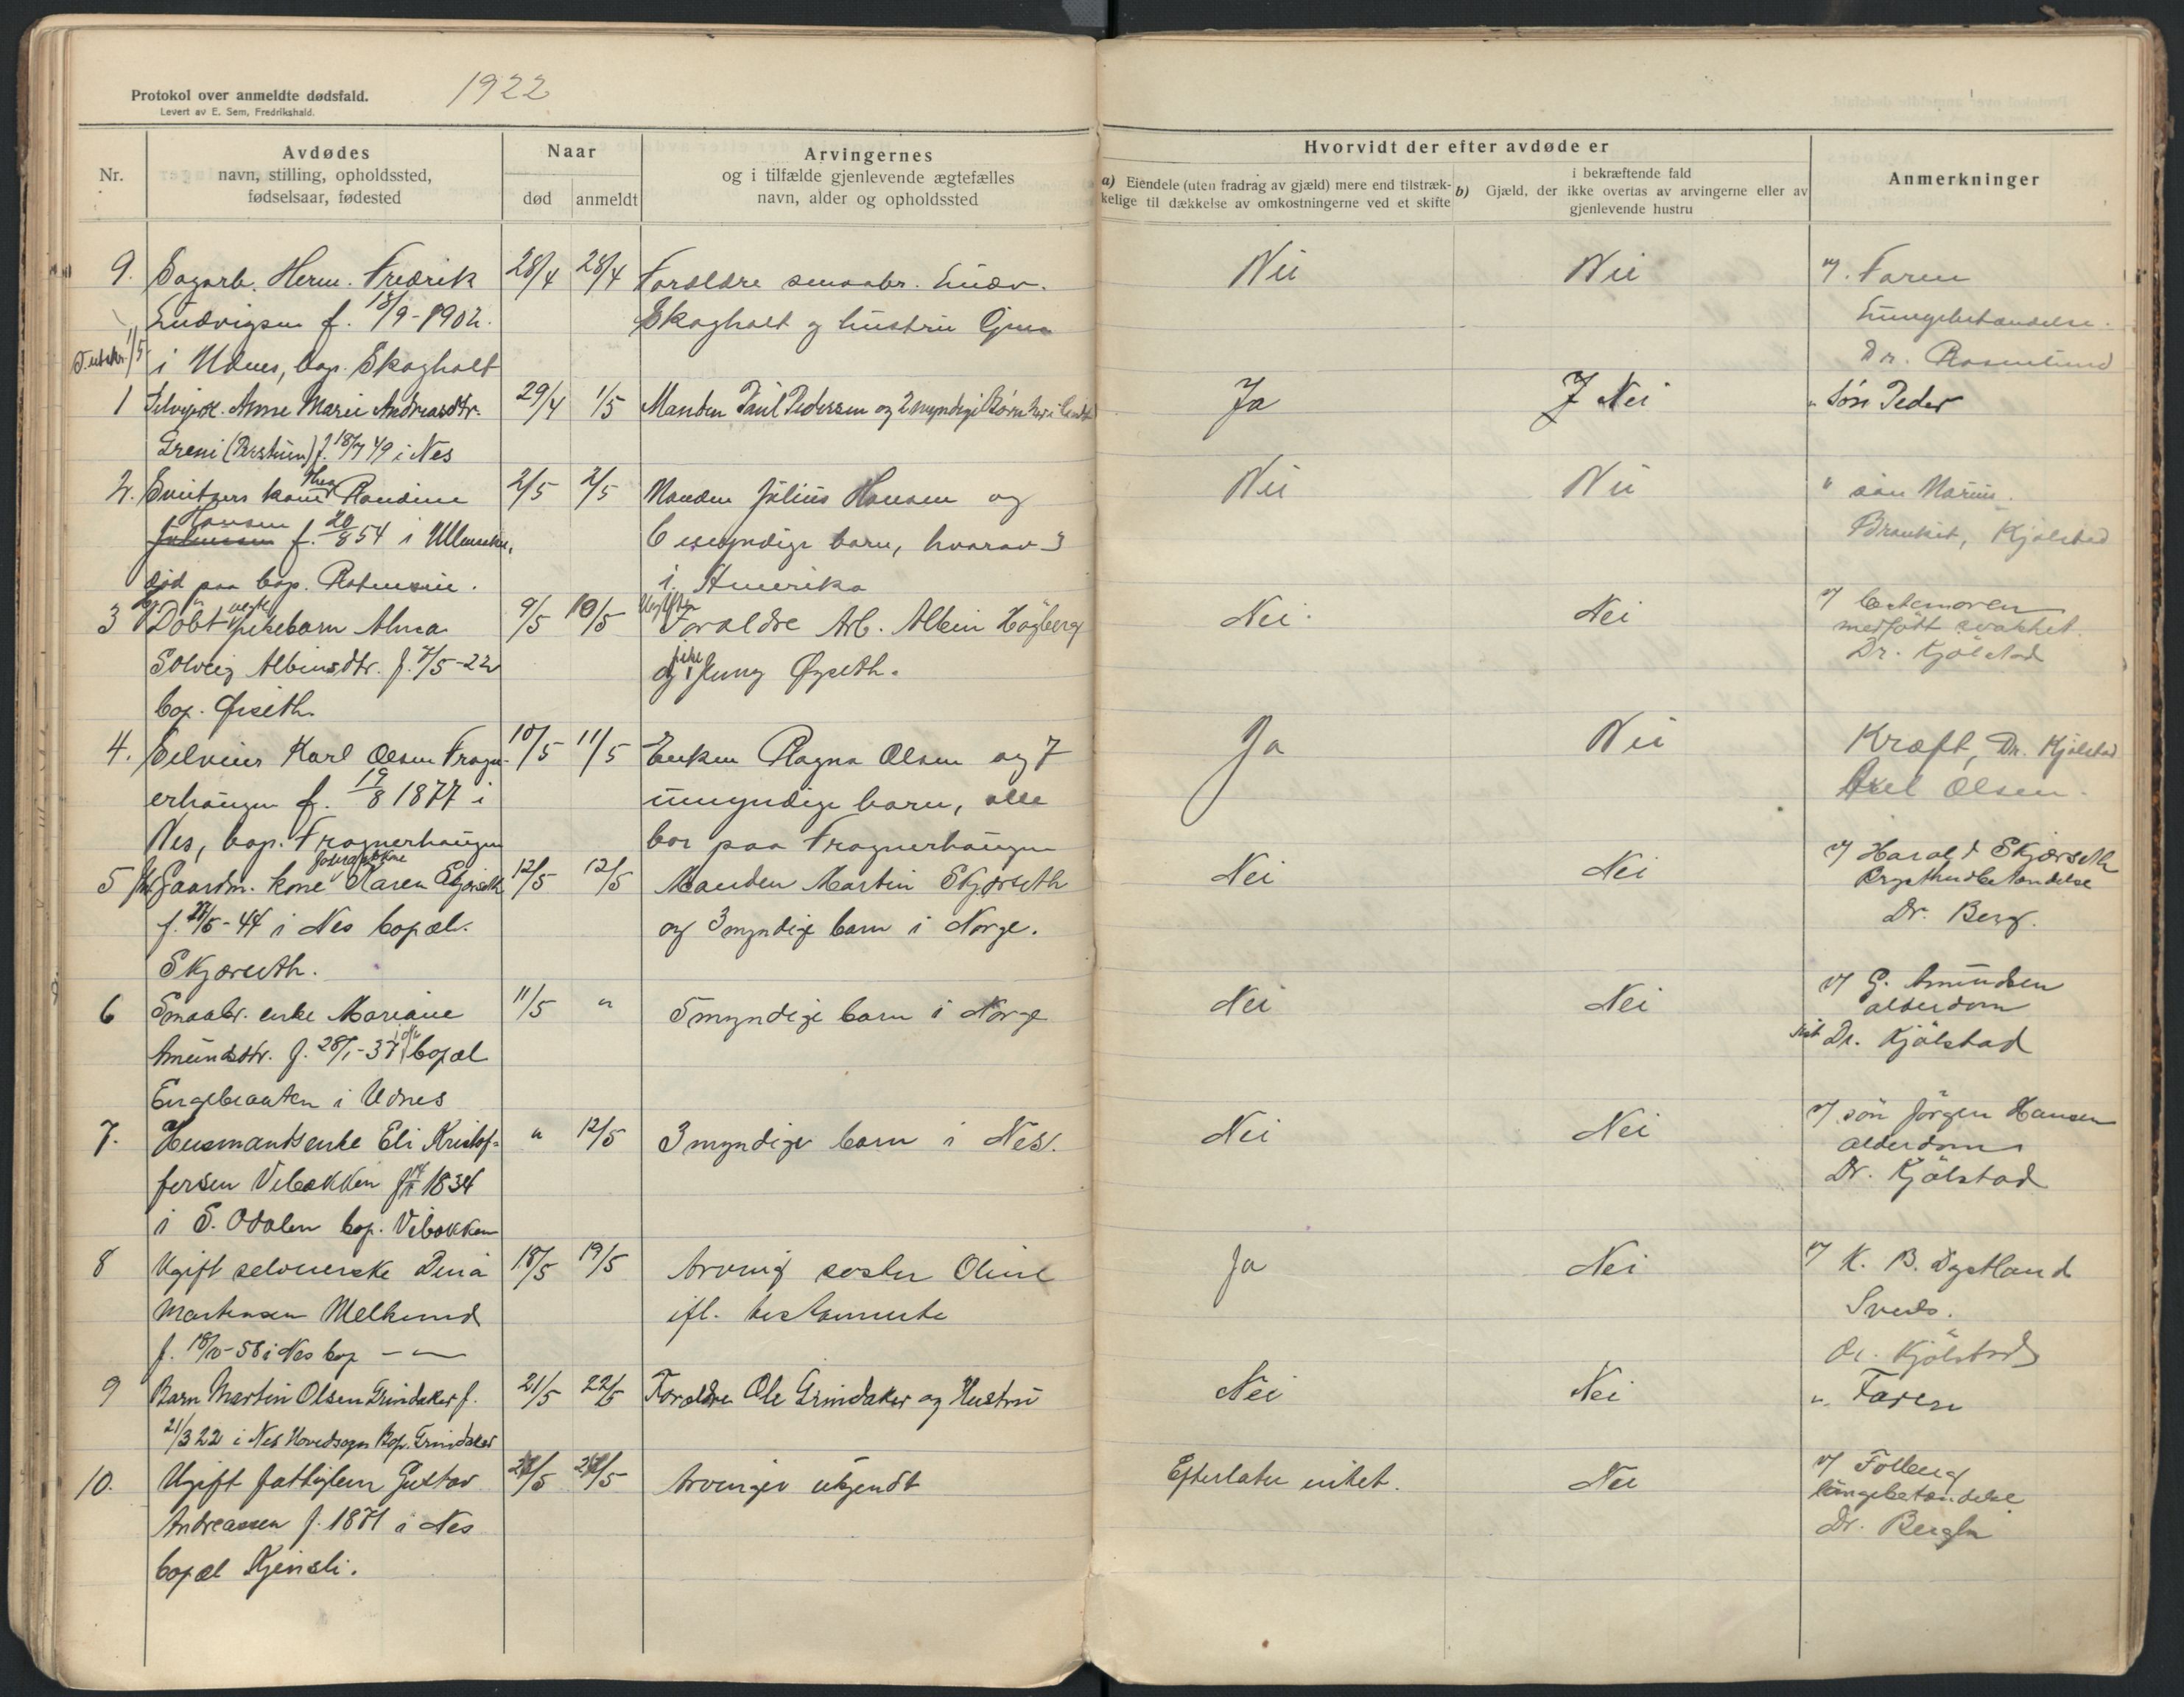 Protokol over anmeldte dødsfald.
1922
Levert av E. Sem, Fredrikshald.
Nr.
Avdødes
navn, stilling, opholdssted,
fødselsaar, fødested
Naar
død
anmeldt
Arvingernes
og i tilfælde gjenlevende ægtefælles
navn, alder og opholdssted
Hvorvidt der efter avdøde er
a) Eiendele (uten fradrag av gjæld) mere end tilstræk-
kelige til dækkelse av omkostningerne ved et skifte
i bekræftende fald
b) Gjæld, der ikke overtas av arvingerne eller av
gjenlevende hustru
Anmerkninger
9. Sagarb. Herm. Fredrik 28/4 28/4 Forældre smaabr. Ludv. Nei Nei v/ Faren
Ludvigsen f. 18/9-1902. Skogholt og hustru Lungebetændelse.
i Udnes, bop. Skogholt Dr.
1 Anne Marie Andreasdtr. 29/4 1/5 Manden Paul Pedersen og 2 myndige Børn her i Landet Ja Nei " Søn Peder
Greni f. 18/7 49 i Nes
2. kone Thea Randine 2/5 2/5 Manden Julius Hansen og Nei Nei " søn Marius.
Hansen f. 20/8 54 i Ullensaker, 6 myndige barn, hvorav 3 Kjølstad
død paa bop. i Amerika
3 Døbt pikebarn Alma 9/5 10/5 Forældre Arb. Albin Högberg Nei Nei v/ Bestemoren
medfødt svakhet.
Solveig Albinsdtr. f. 7/5-22 og pike Jenny Øyseth. Dr. Kjölstad
bop. Øiseth
4. Selveier Karl Olsen Fragn- 10/5 11/5 Enken Ragna Olsen og 7 Ja Nei Kræft, Dr. Kjølstad
erhaugen f. 19/8 1877 i umyndige barn, alle Axel Olsen.
Nes, bop. Fragnerhaugen bor paa Fragnerhaugen
5 Gaardm. kone Karen Skjærseth 12/5 12/5 Manden Martin Skjærseth Nei Nei v/ Harald Skjærseth
Brysthindebetændelse
f. 27/5-44 i Nes bopæl. og 3 myndige barn i Norge. Dr. Berg.
Skjærseth.
6 Smaabr. enke Mariane 11/5 " 5 myndige barn i Norge Nei Nei v/ G. Amundsen
alderdom
Amundsdtr. f. 28/1-37 bopæl Dr. Kjölstad
Engebraaten i Udnes
7. Husmandsenke Eli Kristof- " 12/5 3 myndige barn i Nes. Nei Nei v/ søn Jörgen Hansen
fersen Vibakken 1834 alderdom
i S. Odalen bop. Vibakken Dr. Kjölstad
8 Ugift selveierske Dina 18/5 19/5 Arving søster Oline Ja Nei v/ K. B. Dystland
Martinsen Melkerud ifl. testamente
f. 18/10-58 i Nes bop — " — Dr. Kjölstad
9 Barn Martin Olsen Grindaker f. 21/5 22/5 Forældre Ole Grindaker og Hustru Nei Nei ". Faren
21/3 22 i Nes Hovedsogn Bop. Grindaker
10. Ugift fattiglem Gustav Arvinger ukjendt Efterlater intet. Nei
lungebetændelse
Andreassen f. 1871 i Nes Dr. Bergh
bopæl Kjensli.